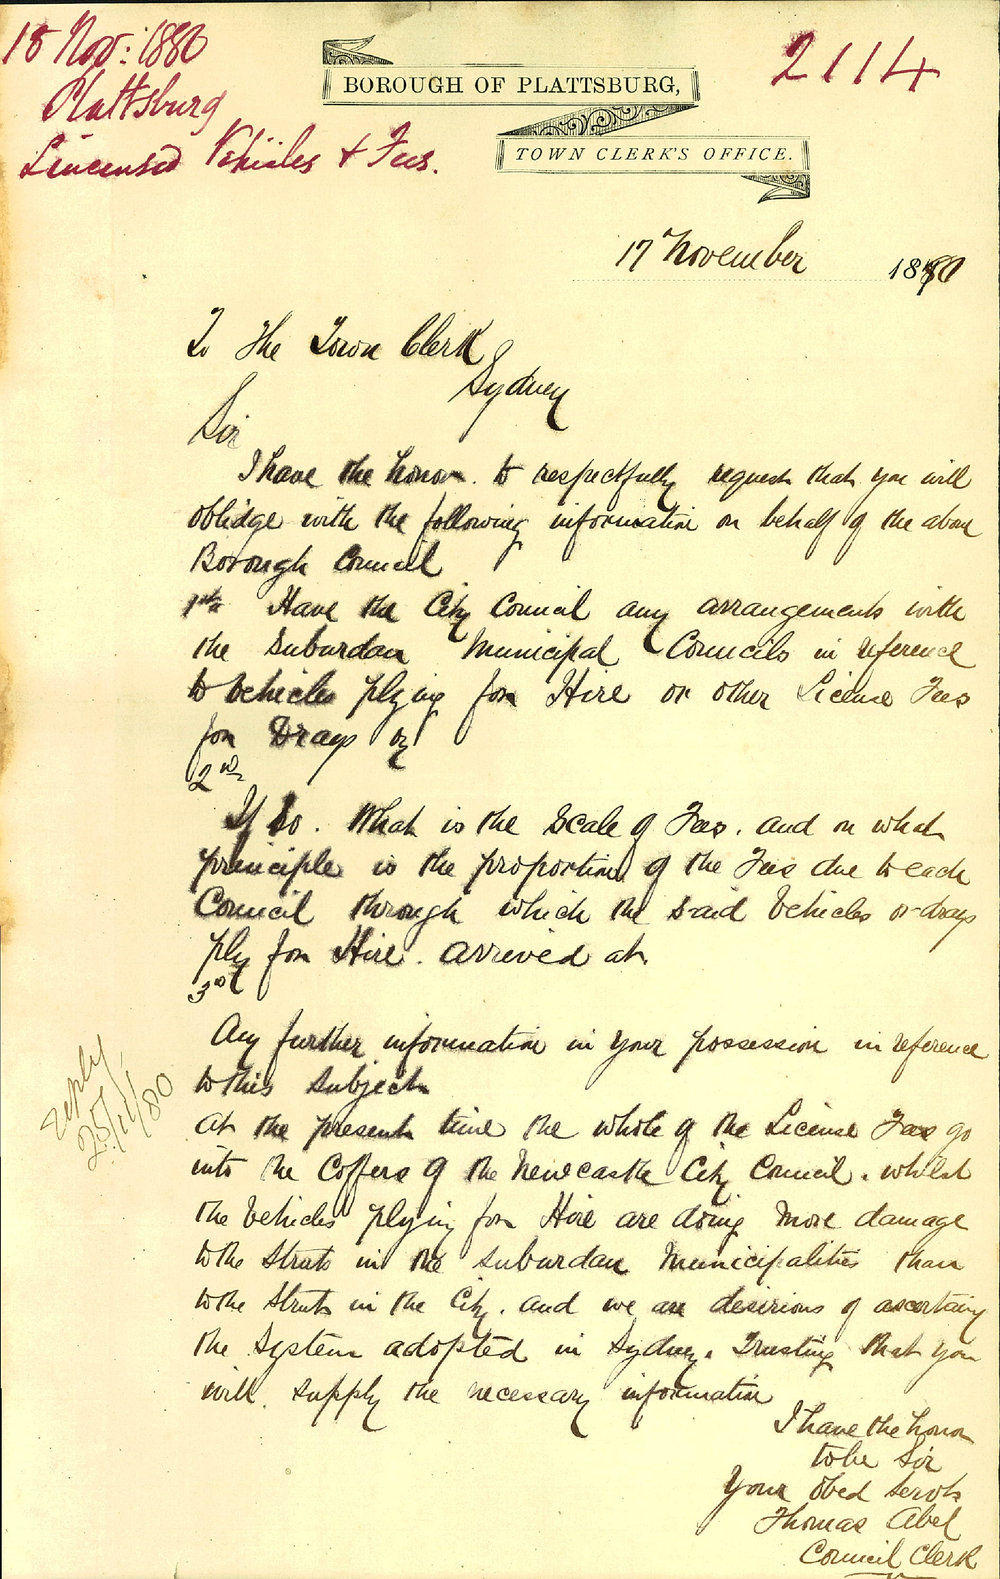 18 Nov: 1880
Plattsburg
Lincensed Vehicles & Fees.
2114
BOROUGH OF PLATTSBURG,
TOWN CLERK'S OFFICE.
17 November 1880
To The Town Clerk
Sydney
Sir
I have the honor to respectfully request that you will
oblidge with the following information on behalf of the above
Borough Council
1st Have the City Council any arrangements with
the Suburdan Municipal Councils in reference
to Vehicles plying for Hire or other License Fees
for Drays &c
2nd
If so. What is the Scale of Fees. and on what
principle is the proportion of the Fees due to each
Council through which the said Vehicles or drays
ply for Hire. arrived at
3rd
Any further information in your possession in reference
to this Subject
at the present time the whole of the License Fees go
into the Coffers of the Newcastle City Council. whilst
the Vehicles plying for Hire are doing more damage
to the Streets in the suburdan Municipalities than
to the Streets in the City. and we are desirious of ascertaing
the System adopted in Sydney. Trusting that you
will supply the necessary information
I have the honor
to be Sir
Your obed servt
Thomas Abel
Council Clerk
Reply
25/11/80